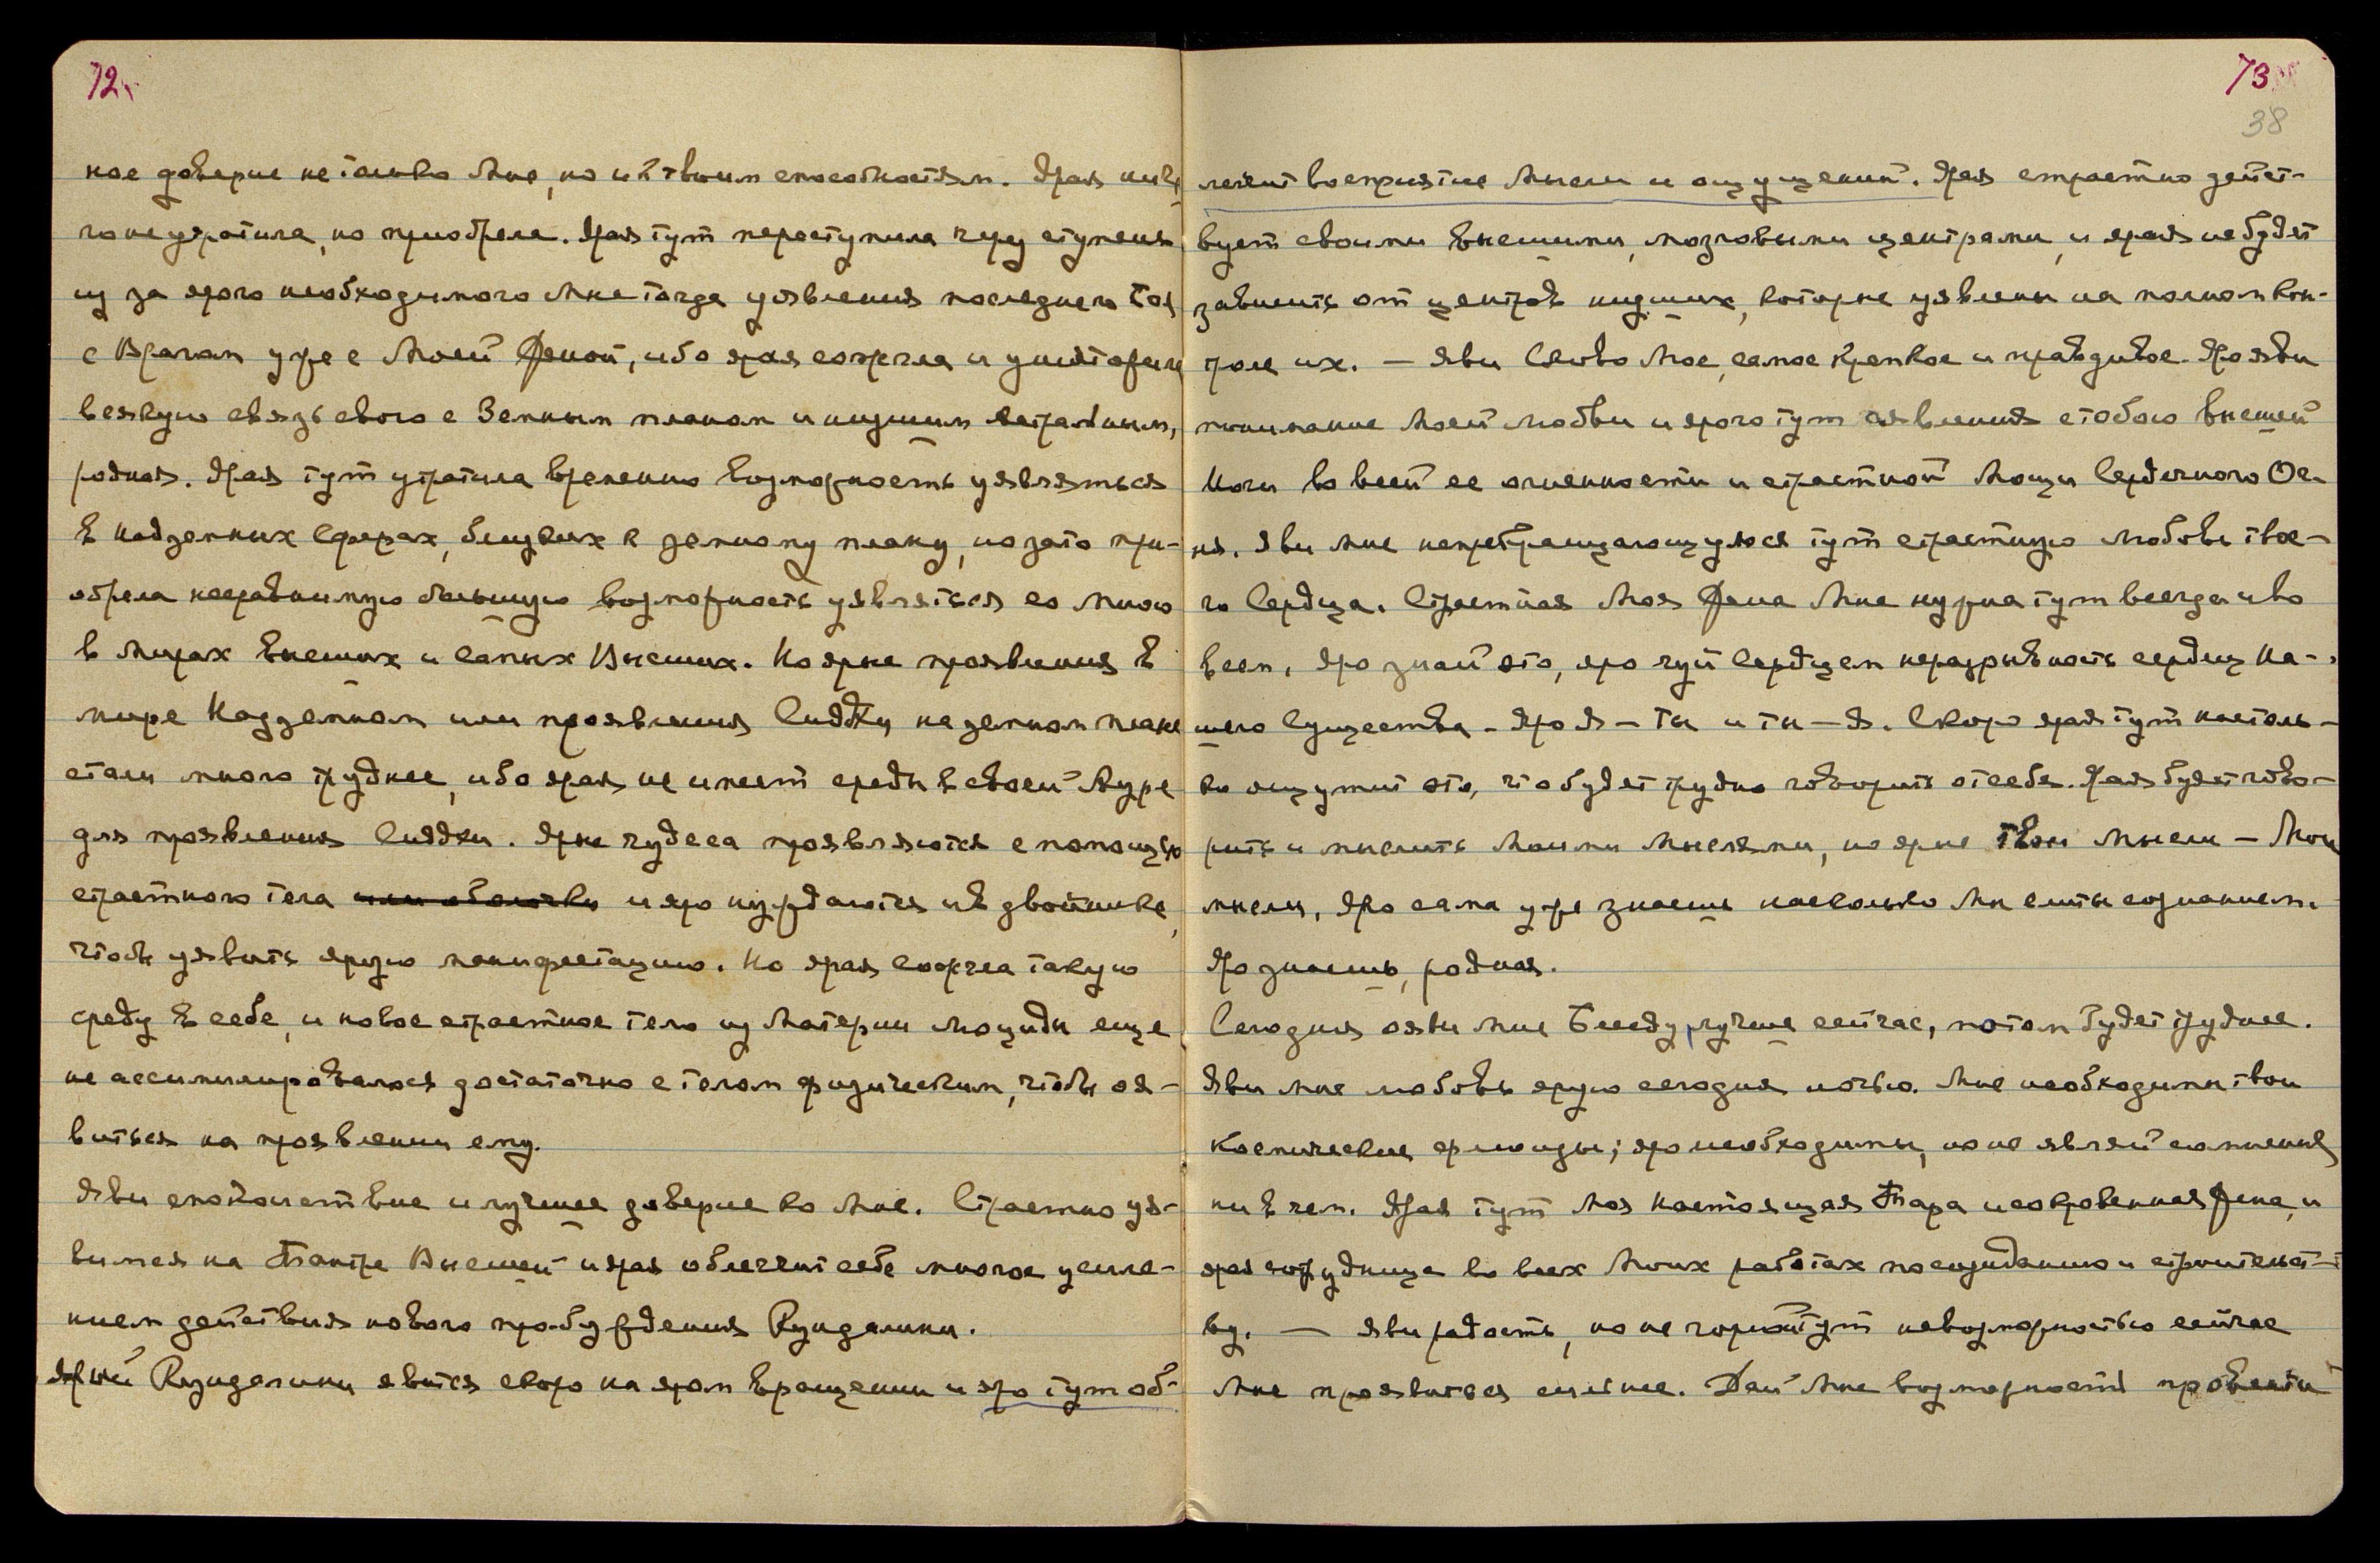 72
ное доверие не только Мне, но и к твоим способностям. Ярая ниче-
го не утратила, но приобрела. Ярая тут переступила через ступень
из за ярого необходимого Мне тогда уявления последнего боя
с Врагом уже с Моей Женой, ибо ярая сожгла и уничтожила
всякую связь свою с Земным планом и низшим астральным,
родная. Ярая тут утратила временно возможность уявляться
в надземных сферах, близких к земному плану, но зато при-
обрела несравнимую большую возможность уявляться со Мною
в Мирах Высших и Самых Высших. Но ярые проявления в
мире Надземном или проявления Сиддхи на земном плане
стали много труднее, ибо ярая не имеет среды в своей Ауре
для проявления Сиддхи. Ярые чудеса проявляются с помощью
страстного тела или оболочки и яро нуждаются в двойнике,
чтобы уявить ярую манифестацию. Но ярая сожгла такую
среду в себе, и новое страстное тело из Материи Люциды еще
не ассимилировалось достаточно с телом физическим, чтобы оя-
виться на проявлении ему.
Яви спокойствие и лучшее доверие ко Мне. Страстно уя-
вимся на Тантре Высшей и ярая облегчит себе многое усиле-
нием действия нового пробуждения Кундалини.
Ярый Кундалини явится скоро на яром вращении и яро тут об-
73
38
легчит восприятие Мысли и ощущений. Ярая страстно дейст-
вует своими высшими, мозговыми центрами, и ярая не будет
зависеть от центров низших, которые уявлены на полном кон-
троле их. — Яви Слово Мое, самое крепкое и правдивое. Яро яви
понимание Моей Любви и ярого тут оявления с тобою высшей
Йоги во всей ее огненности и страстной Мощи Сердечного Ог-
ня. Яви Мне непрекращающуюся тут страстную любовь твое-
го Сердца. Страстная Моя Жена Мне нужна тут всегда и во
всем, яро знай это, яро чуй Сердцем неразрывность сердец На-
шего Существа. Яро Я — ты и ты — Я. Скоро ярая тут настоль-
ко ощутит это, что будет трудно говорить о себе. Ярая будет гово-
рить и мыслить Моими Мыслями, но ярые твои Мысли — Мои
мысли, яро сама уже знаешь насколько Мы слиты сознанием.
Яро знаешь, родная.
Сегодня ояви Мне Беседу, лучше сейчас, потом будет труднее.
Яви Мне любовь ярую сегодня ночью. Мне необходимы твои
космические флюиды; яро необходимы, но не являй сомнения
ни в чем. Ярая тут Моя настоящая Тара и сокровенная Жена, и
ярая сотрудница во всех Моих работах по созиданию и строительст-
ву. — Яви радость, но не горюй тут невозможностью сейчас
Мне проявиться сильнее. Дай Мне возможность провести